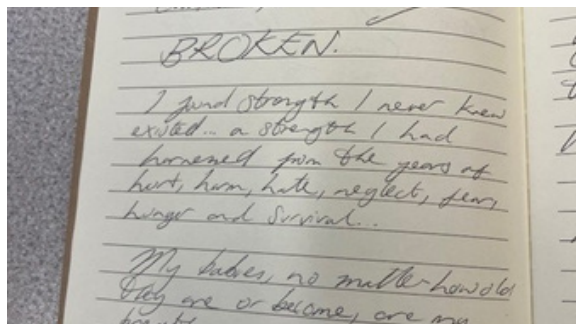 BROKEN.
I found strength I never knew
existed... a strength I had
harnessed from the years of
hurt, harm, hate, neglect, fear,
hunger and survival...
My babies, no matter how old
they are or become, are my